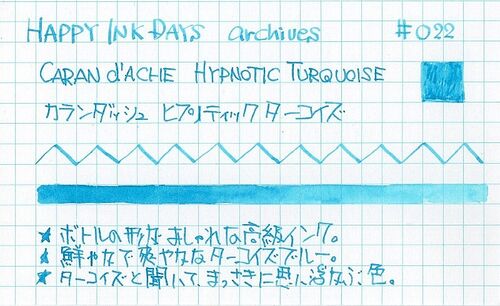 HAPPY INK DAYS archives #022
CARAN d'ACHE HYPNOTIC TURQUOISE
カランダッシュ ヒプノティック ターコイズ
★ ボトルの形もおしゃれな高級インク。
★ 鮮やかで爽やかなターコイズブルー。
★ ターコイズと聞いて、まっさきに思い浮かぶ色。